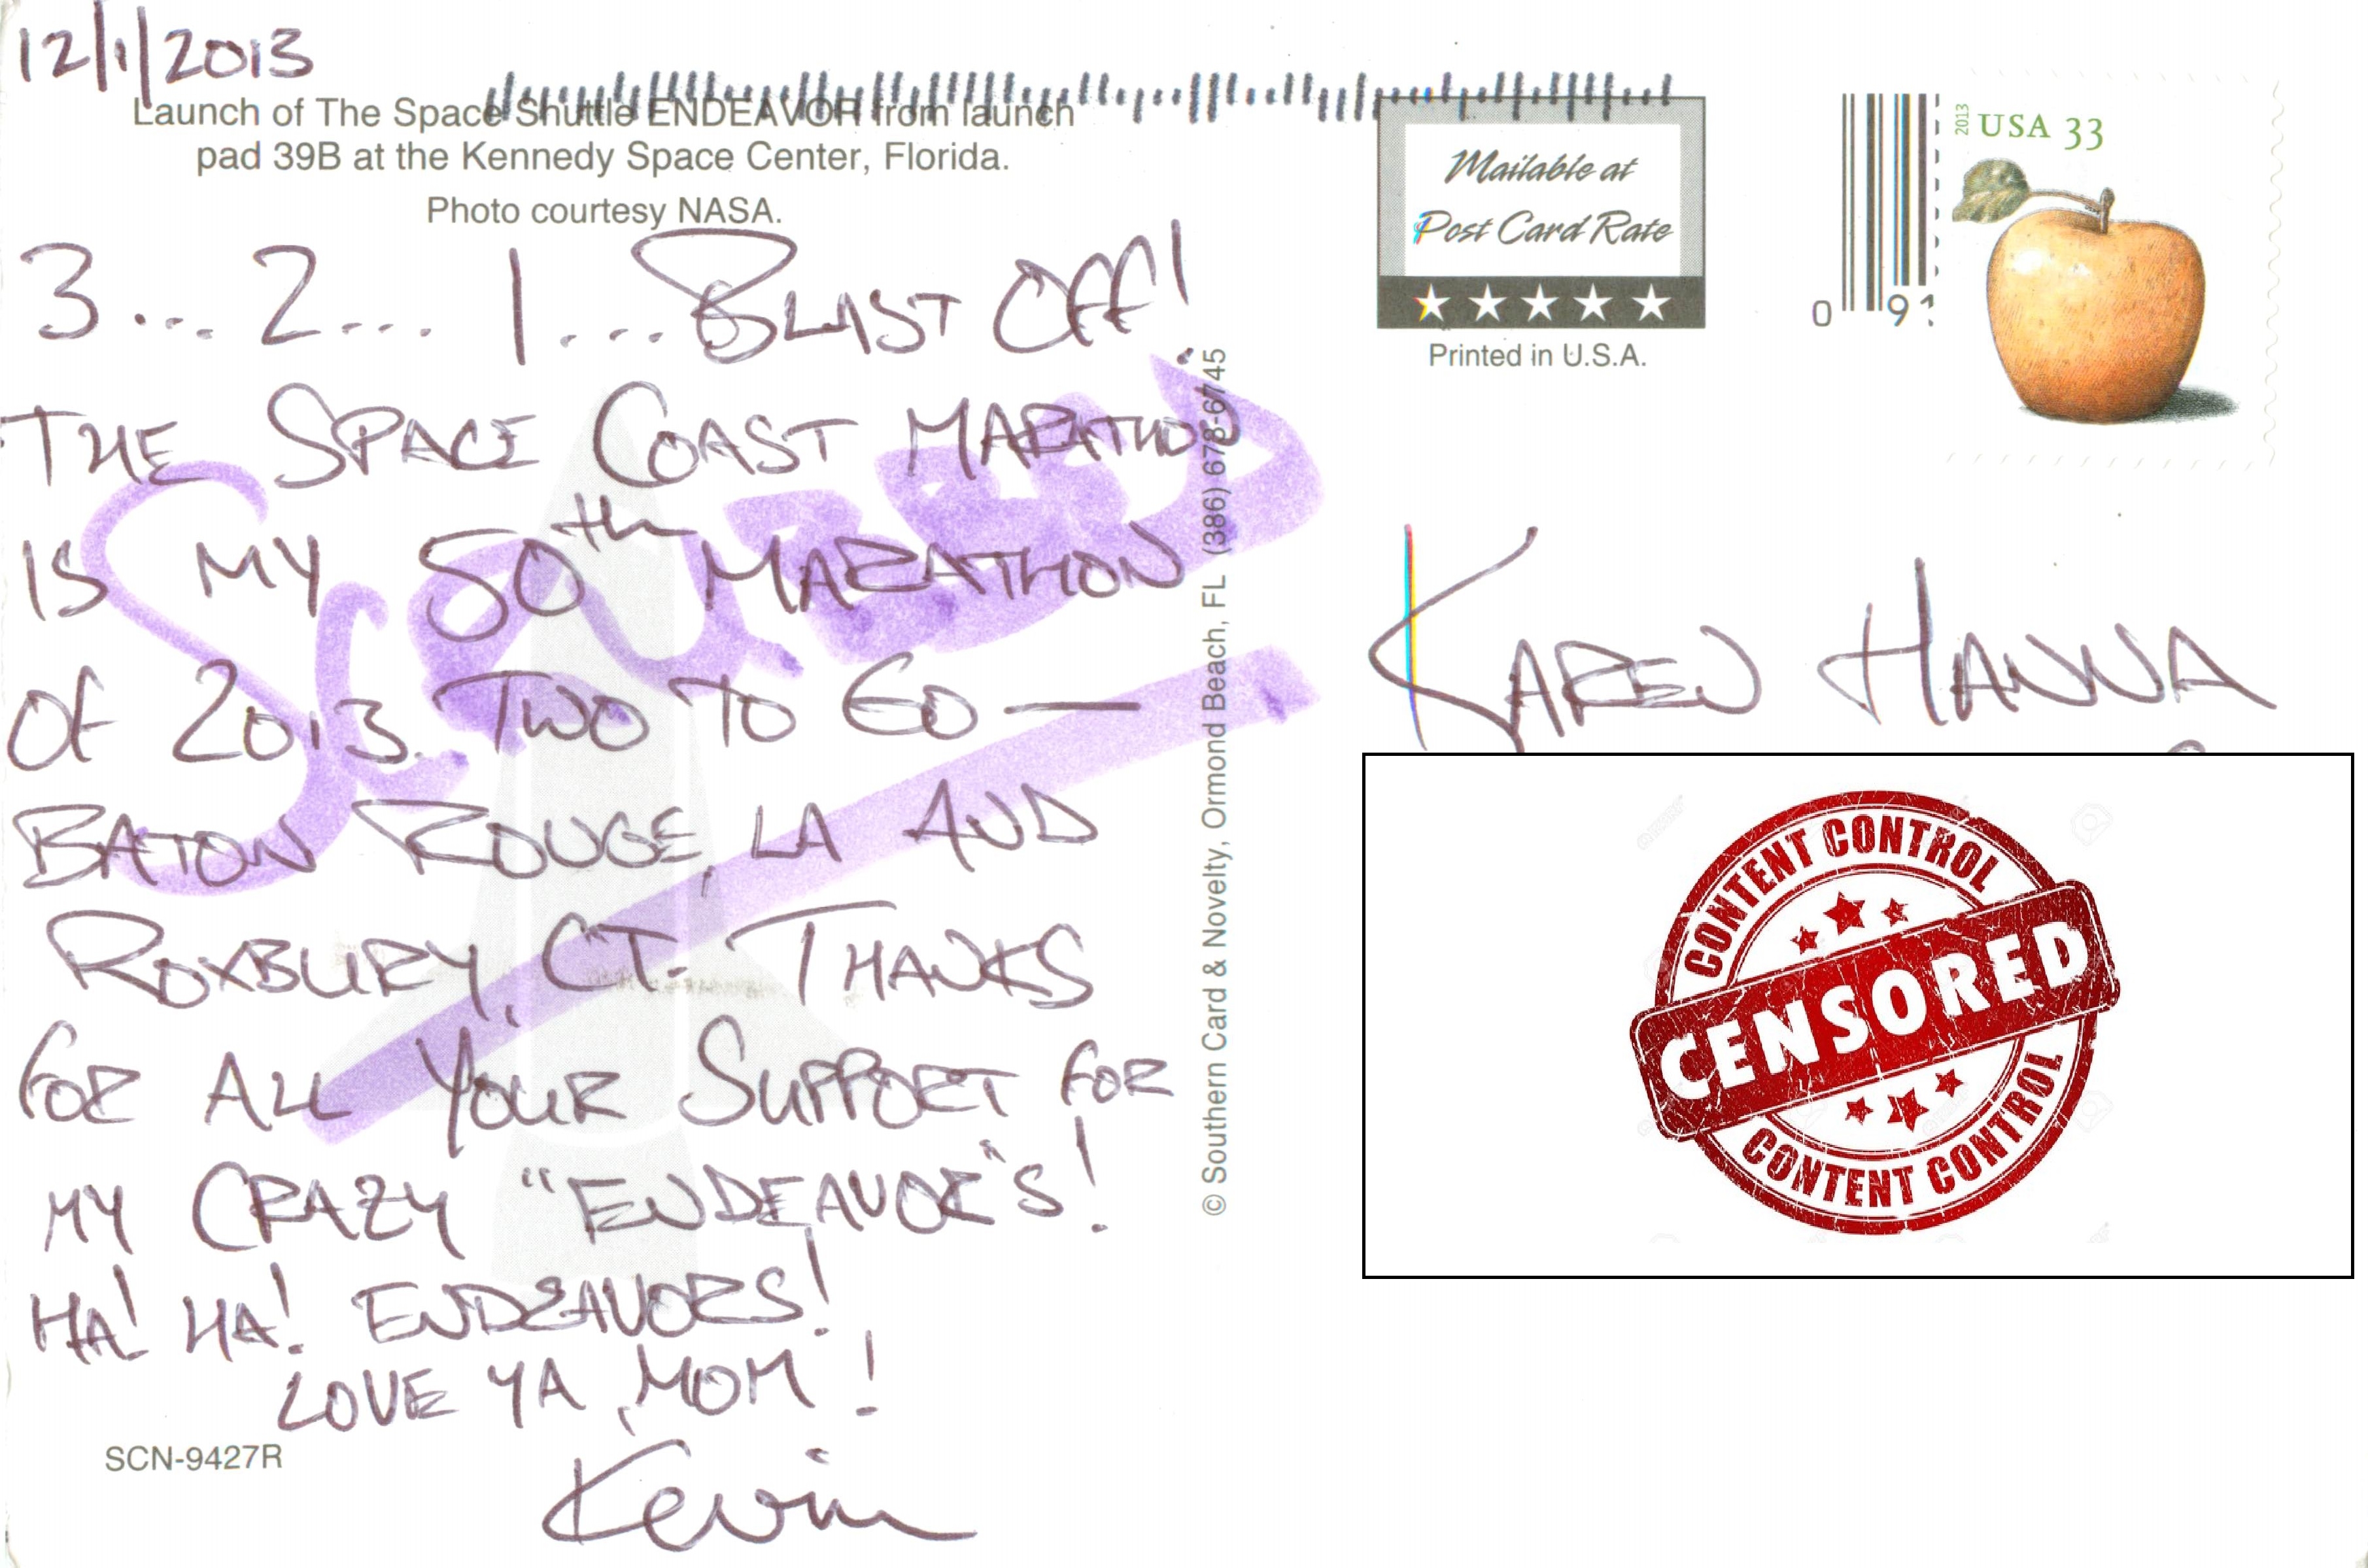 12/1/2013
Launch of The Space Shuttle ENDEAVOR from launch
pad 39B at the Kennedy Space Center, Florida.
Photo courtesy NASA.
3... 2... 1... BLAST OFF!
THE SPACE COAST MARATHON
IS MY 50th MARATHON
OF 2013. TWO TO GO —
BATON ROUGE, LA AND
ROXBURY, CT. THANKS
FOR ALL YOUR SUPPORT FOR
MY CRAZY "ENDEAVOR"S!
HA! HA! ENDEAVORS!
LOVE YA, MOM!
Kevin
SCN-9427R
SCANNED
© Southern Card & Novelty, Ormond Beach, FL (386) 678-6745
Mailable at
Post Card Rate
Printed in U.S.A.
0 91
2013 USA 33
KAREN HANNA
CONTENT CONTROL
CENSORED
CONTENT CONTROL